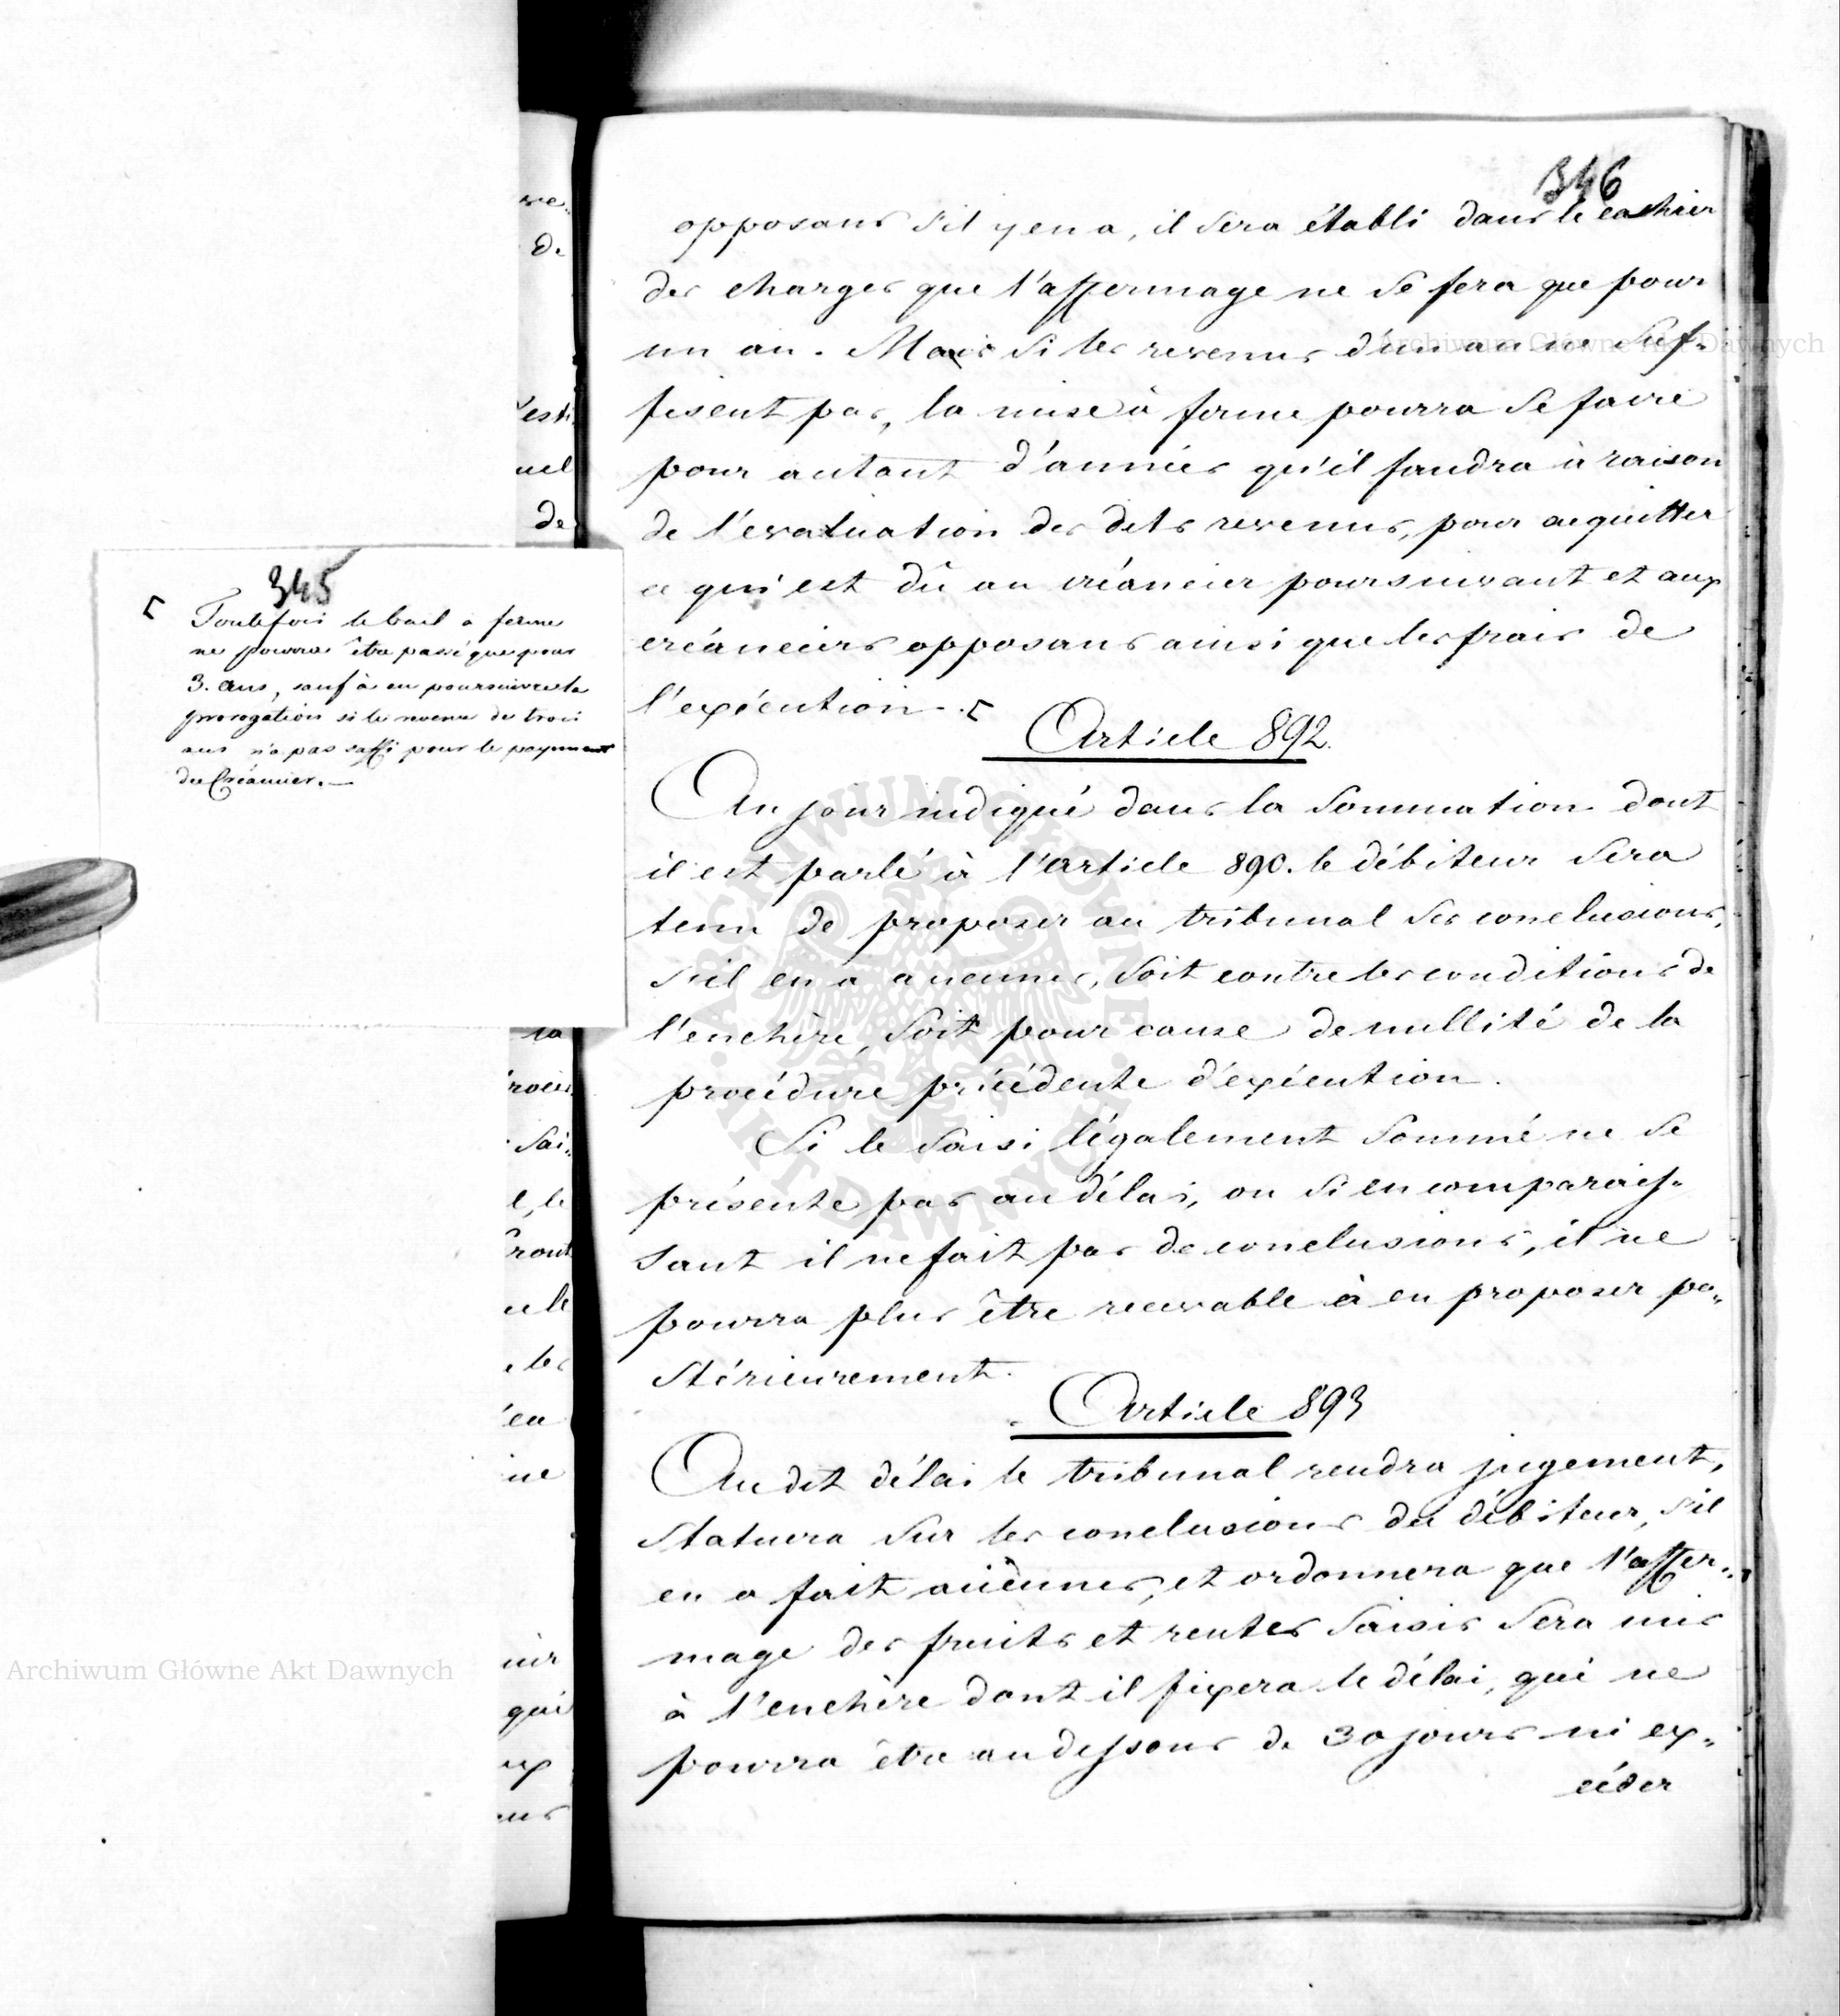 346
opposans s'il y en a, il sera établi dans le cachier
des charges que l'affermage ne se fera que pour
un an. Mais si les revenus d'un an ne suf-
fisent pas, la mise à ferme pourra se faire
pour autant d'années qu'il faudra à raison
de l'evaluation des dits revenus, pour acquitter
ce qui est dû au créancier poursuivant et aux
créanciers opposans ainsi que les frais de
l'exécution. ⌈
Article 892.
Au jour indiqué dans la sommation dont
il est parlé à l'article 890. le débiteur sera
tenu de proposer au tribunal ses conclusions,
s'il en a aucunes, soit contre les conditions de
l'enchère, soit pour cause de nullité de la
procédure précédente d'exécution.
Si le saisi légalement sommé ne se
présente pas au délai, ou si en comparais-
sant il ne fait pas de conclusions, il ne
pourra plus être recevable à en proposer po-
stérieurement.
Article 893
Au dit délai le tribunal rendra jugement,
statuera sur les conclusions du débiteur, s'il
en a fait aucunes, et ordonnera que l'affer-
mage des fruits et rentes saisis sera mis
à l'enchère dont il fixera le délai, qui ne
pourra être au dessous de 30 jours ni ex-
céder
345
⌈ Toutefois le bail à ferme
ne pourra être passé que pour
3. ans, sauf à en poursuivre la
prorogation si le revenu de trois
ans n'a pas suffi pour le payement
du Créancier. —
ve-
de
esti
uel
de
la
sai-
l, le
ront
les
en
ne
qui
Archiwum Główne Akt Dawnych
Archiwum Główne Akt Dawnych
ARCHIWUM GŁÓWNE AKT DAWNYCH